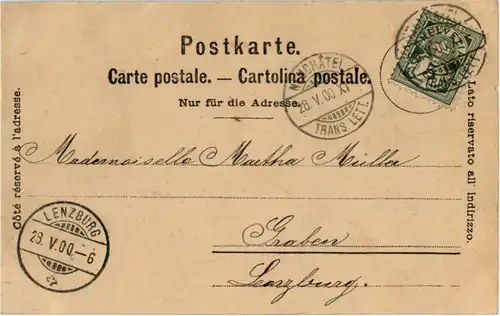 Postkarte.
Carte postale. — Cartolina postale.
Nur für die Adresse.
HELVETIA
NEUCHÂTEL
28.V.00.XI
TRANS. LETT.
Côté réservé à l'adresse.
Lato riservato all' indirizzo.
Mademoiselle Martha Müller
Graben
Lenzburg.
LENZBURG
29.V.00.-6